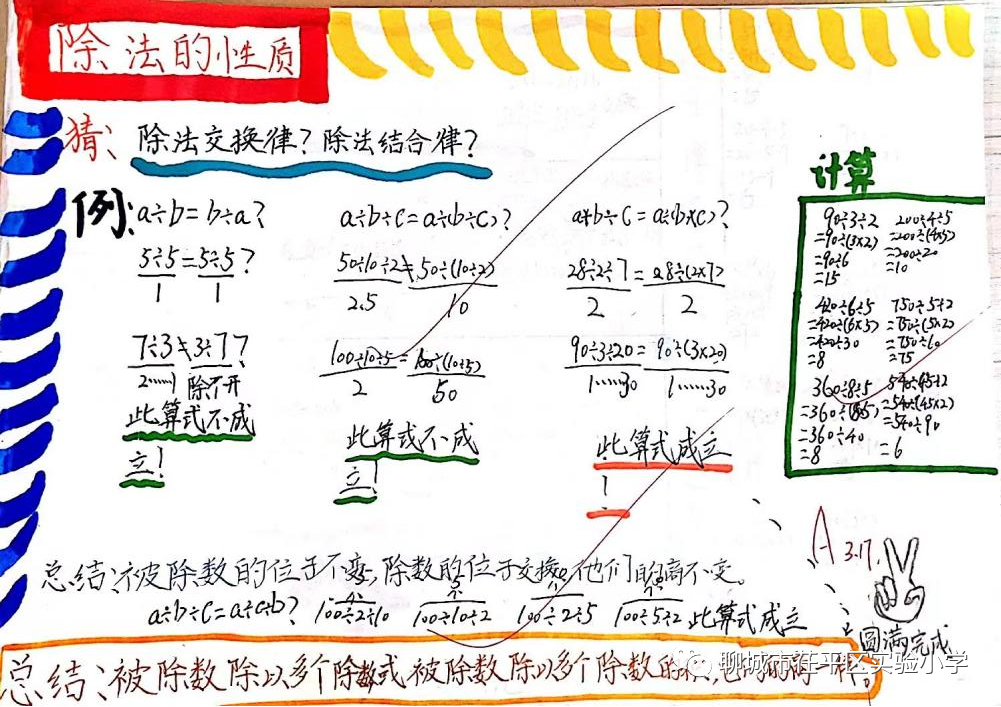 除法的性质
猜、除法交换律？除法结合律？
例：
a÷b=b÷a？
5÷5=5÷5？
1 1
7÷3≠3÷7？
2……1 除不开
此算式不成
立！
a÷b÷c=a÷(b÷c)？
50÷10÷2≠50÷(10÷2)
2.5 10
100÷10÷5=100÷(10÷5)
2 50
此算式不成
立！
a÷b÷c=a÷(b×c)？
28÷2÷7=28÷(2×7)
2 2
90÷3÷20=90÷(3×20)
1……30 1……30
此算式成立
！
计算
90÷3÷2
=90÷(3×2)
=90÷6
=15
200÷4÷5
=200÷(4×5)
=200÷20
=10
420÷6÷5
=420÷(6×5)
=420÷30
=8
750÷5÷2
=750÷(5×2)
=750÷10
=75
360÷8÷5
=360÷(8×5)
=360÷40
=8
540÷45÷2
=540÷(45×2)
=540÷90
=6
A 3.17.
圆满完成
总结：被除数的位子不变，除数的位子交换，他们的商不变。
a÷b÷c=a÷c÷b？ 100÷2÷10 100÷10÷2 100÷2÷5 100÷5÷2 此算式成立
总结：被除数除以多个除数或被除数除以多个除数的
聊城市茌平区实验小学